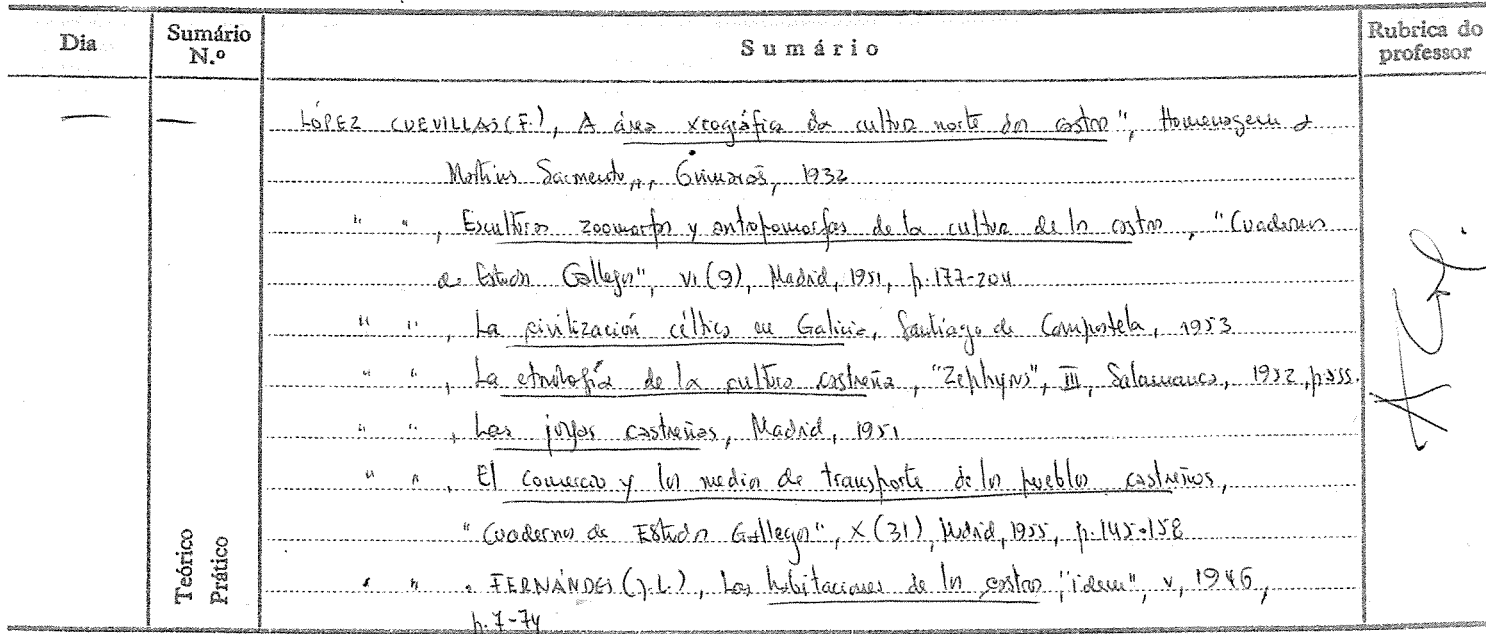 Dia
Sumário N.º
Sumário
Rubrica do professor
— —
LÓPEZ CUEVILLAS (F.), A área xeográfica da cultura norte dos castros", Homenagem a
Martins Sarmento", Guimarães, 1932
" ", Esculturas zoomorfas y antropomorfas de la cultura de los castros, "Cuadernos
de Estudios Gallegos", VI (9), Madrid, 1951, p. 177-204
" ", La civilización céltica en Galicia, Santiago de Compostela, 1953
" ", La etnología de la cultura castreña, "Zephyrus", III, Salamanca, 1952, pass.
" ", Las joyas castreñas, Madrid, 1951
" ", El comercio y los medios de transporte de los pueblos castreños,
"Cuadernos de Estudios Gallegos", X (31), Madrid, 1955, p. 145-158
" " . FERNÁNDES (J.L.), Las habitaciones de los castros, "idem", V, 1946,
p. 7-74
Teórico
Prático